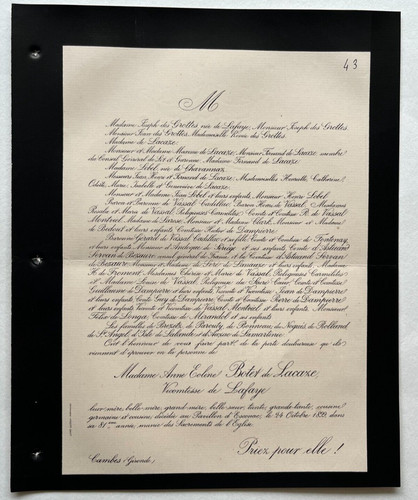 43
M
Madame Joseph des Grottes née de Lafaye, Monsieur Joseph des Grottes,
Monsieur Jean des Grottes, Mademoiselle des Grottes,
Madame de Lacaze,
Monsieur et Madame de Lacaze, Monsieur Fernand de Lacaze membre
du Conseil Général de Lot et Garonne, Madame Fernand de Lacaze,
Madame Lebel née de Chavannaz,
Messieurs Jean, et Fernand de Lacaze, Mesdemoiselles Henriette, Catherine,
Odette, Marie, Isabelle et Geneviève de Lacaze,
Monsieur et Madame Jean Lebel et leurs enfants, Monsieur Henri Lebel,
Baron et Baronne de Vassal Cadillac, Baron Henri de Vassal, Mesdames
et Marie de Vassal Religieuses Comte et Comtesse R. de Vassal
Montviel, Madame de Monsieur et Madame Clerk, Monsieur et Madame
de et leurs enfants, Comtesse de Dampierre,
Baronne Gérard de Vassal Cadillac et sa fille, Comte et Comtesse de Fontenay,
et leurs enfants, Monsieur et Madame de et ses enfants, Comte d'Adhémar
Servan de Bezaure consul général de France, et la Comtesse d'Adhémar Servan
de Bezaure, Monsieur et Madame de de Lanauze et leurs enfants, Madame
H. de Fremont, Mesdames Thérèse et Marie de Vassal, Religieuses Carmélites,
et Madame Louise de Vassal, Religieuse du Sacré Cœur, Comte et Comtesse
Guillaume de Dampierre et leurs enfants, Vicomte et Vicomtesse Jean de Dampierre
et leurs enfants, Comte Guy de Dampierre, Comte et Comtesse Pierre de Dampierre
et leurs enfants, Vicomte et Vicomtesse de Vassal Montviel et leurs enfants, Monsieur
Félix de Donga, Comtesse de Mirandol et ses enfants,
Les familles de de de Boisneau, de de Rolland,
de St Angel, d'Isle de Lalande et de
Ont l'honneur de vous faire part de la perte douloureuse qu'ils
viennent d'éprouver en la personne de
Madame Anne Eoline Botet de Lacaze,
Vicomtesse de Lafaye
leur mère, belle-mère, grand-mère, belle-sœur, tante, grande-tante, cousine
germaine et cousine, décédée au Pavillon d' le 24 Octobre 1899 dans
sa 81ème année, munie des Sacrements de l'Eglise.
Priez pour elle!
Cambes (Gironde)